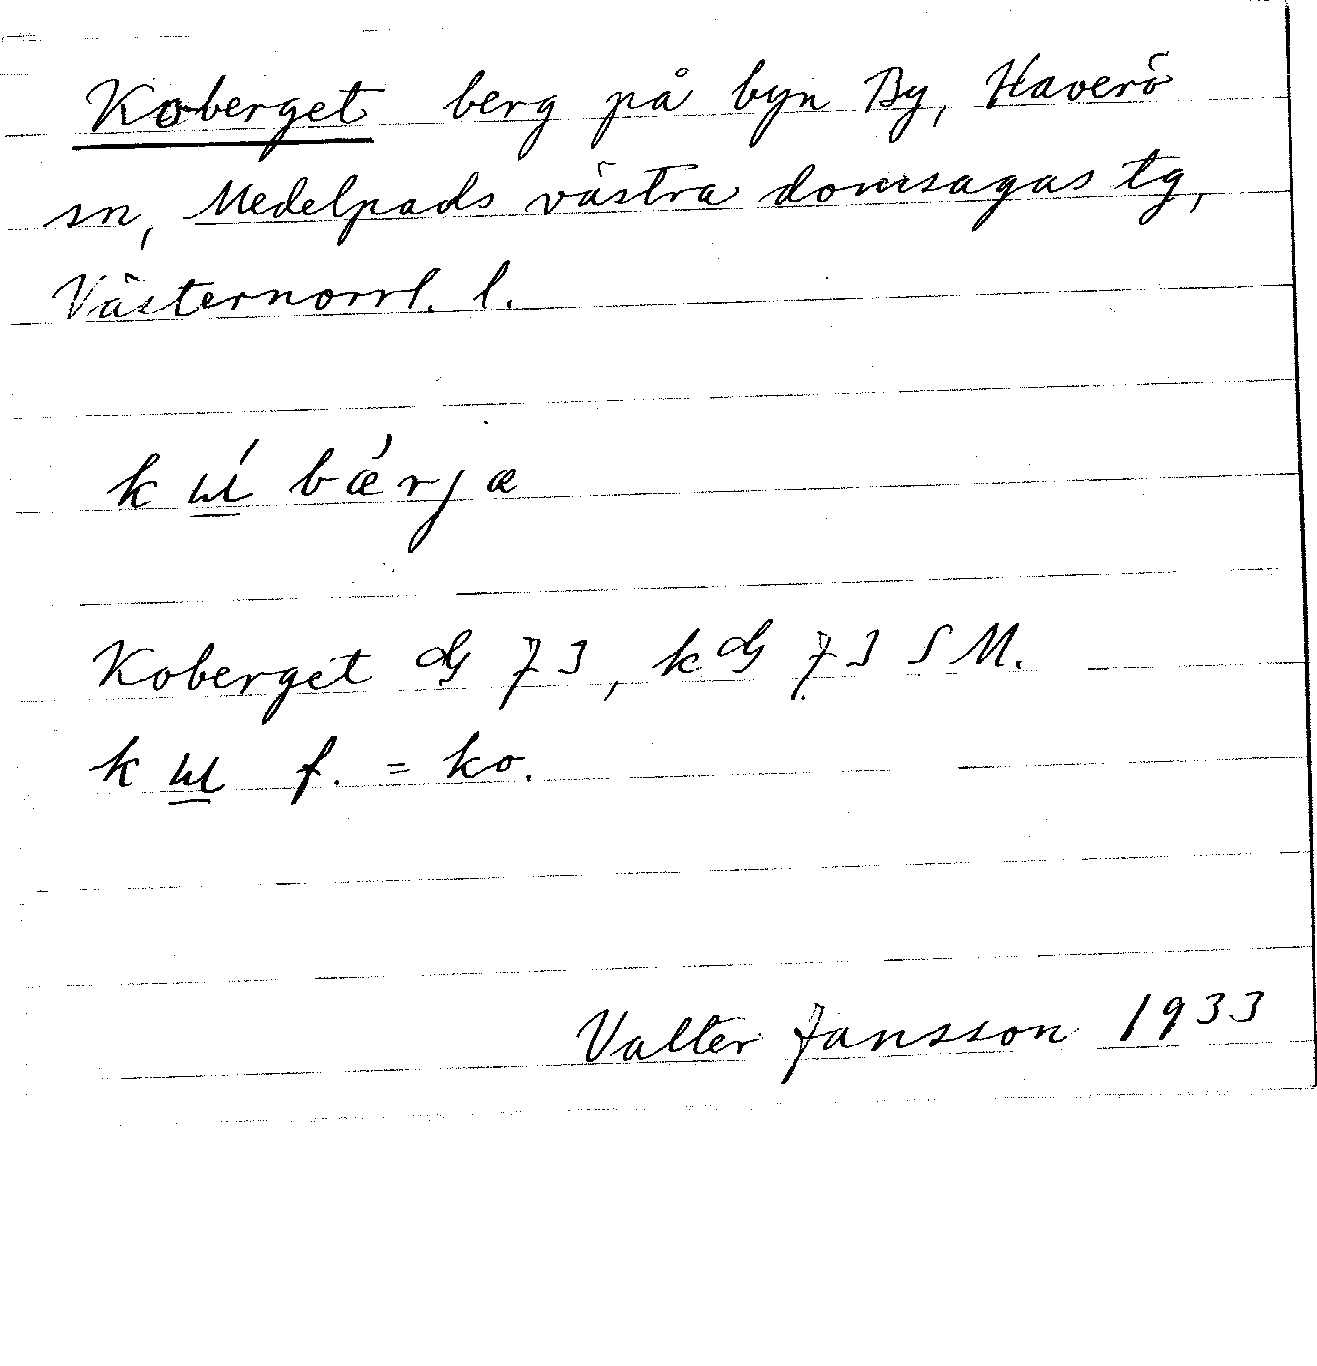 Koberget berg på byn By, Haverö
sn, Medelpads västra domsagas tg,
Västernorrl. l.
k ɯ́ bǽrja
Koberget G 73, k G 73 SM.
k ɯ f. = ko.
Valter Jansson 1933